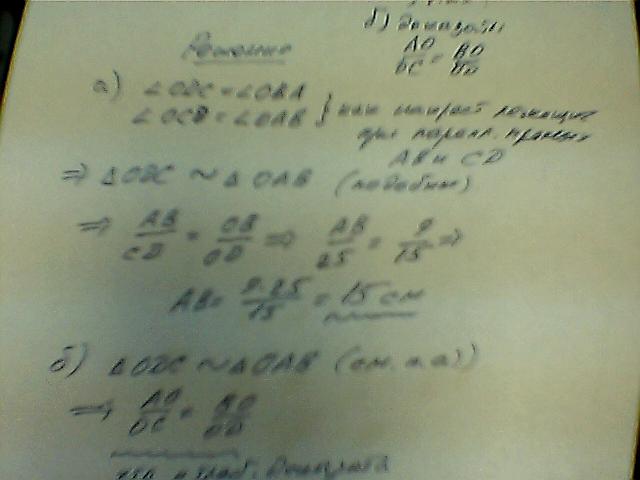 б) доказать
AO/OC = BO/OD
Решение
а) ∠ODC = ∠OBA
∠OCD = ∠OAB } как накрест лежащие
при паралл. прямых
AB и CD
⇒ ΔODC ~ ΔOAB (подобны)
⇒ AB/CD = OB/OD ⇒ AB/25 = 9/15 ⇒
AB = 9·25/15 = 15 см
б) ΔODC ~ ΔOAB (см. п. а))
⇒ AO/OC = BO/OD